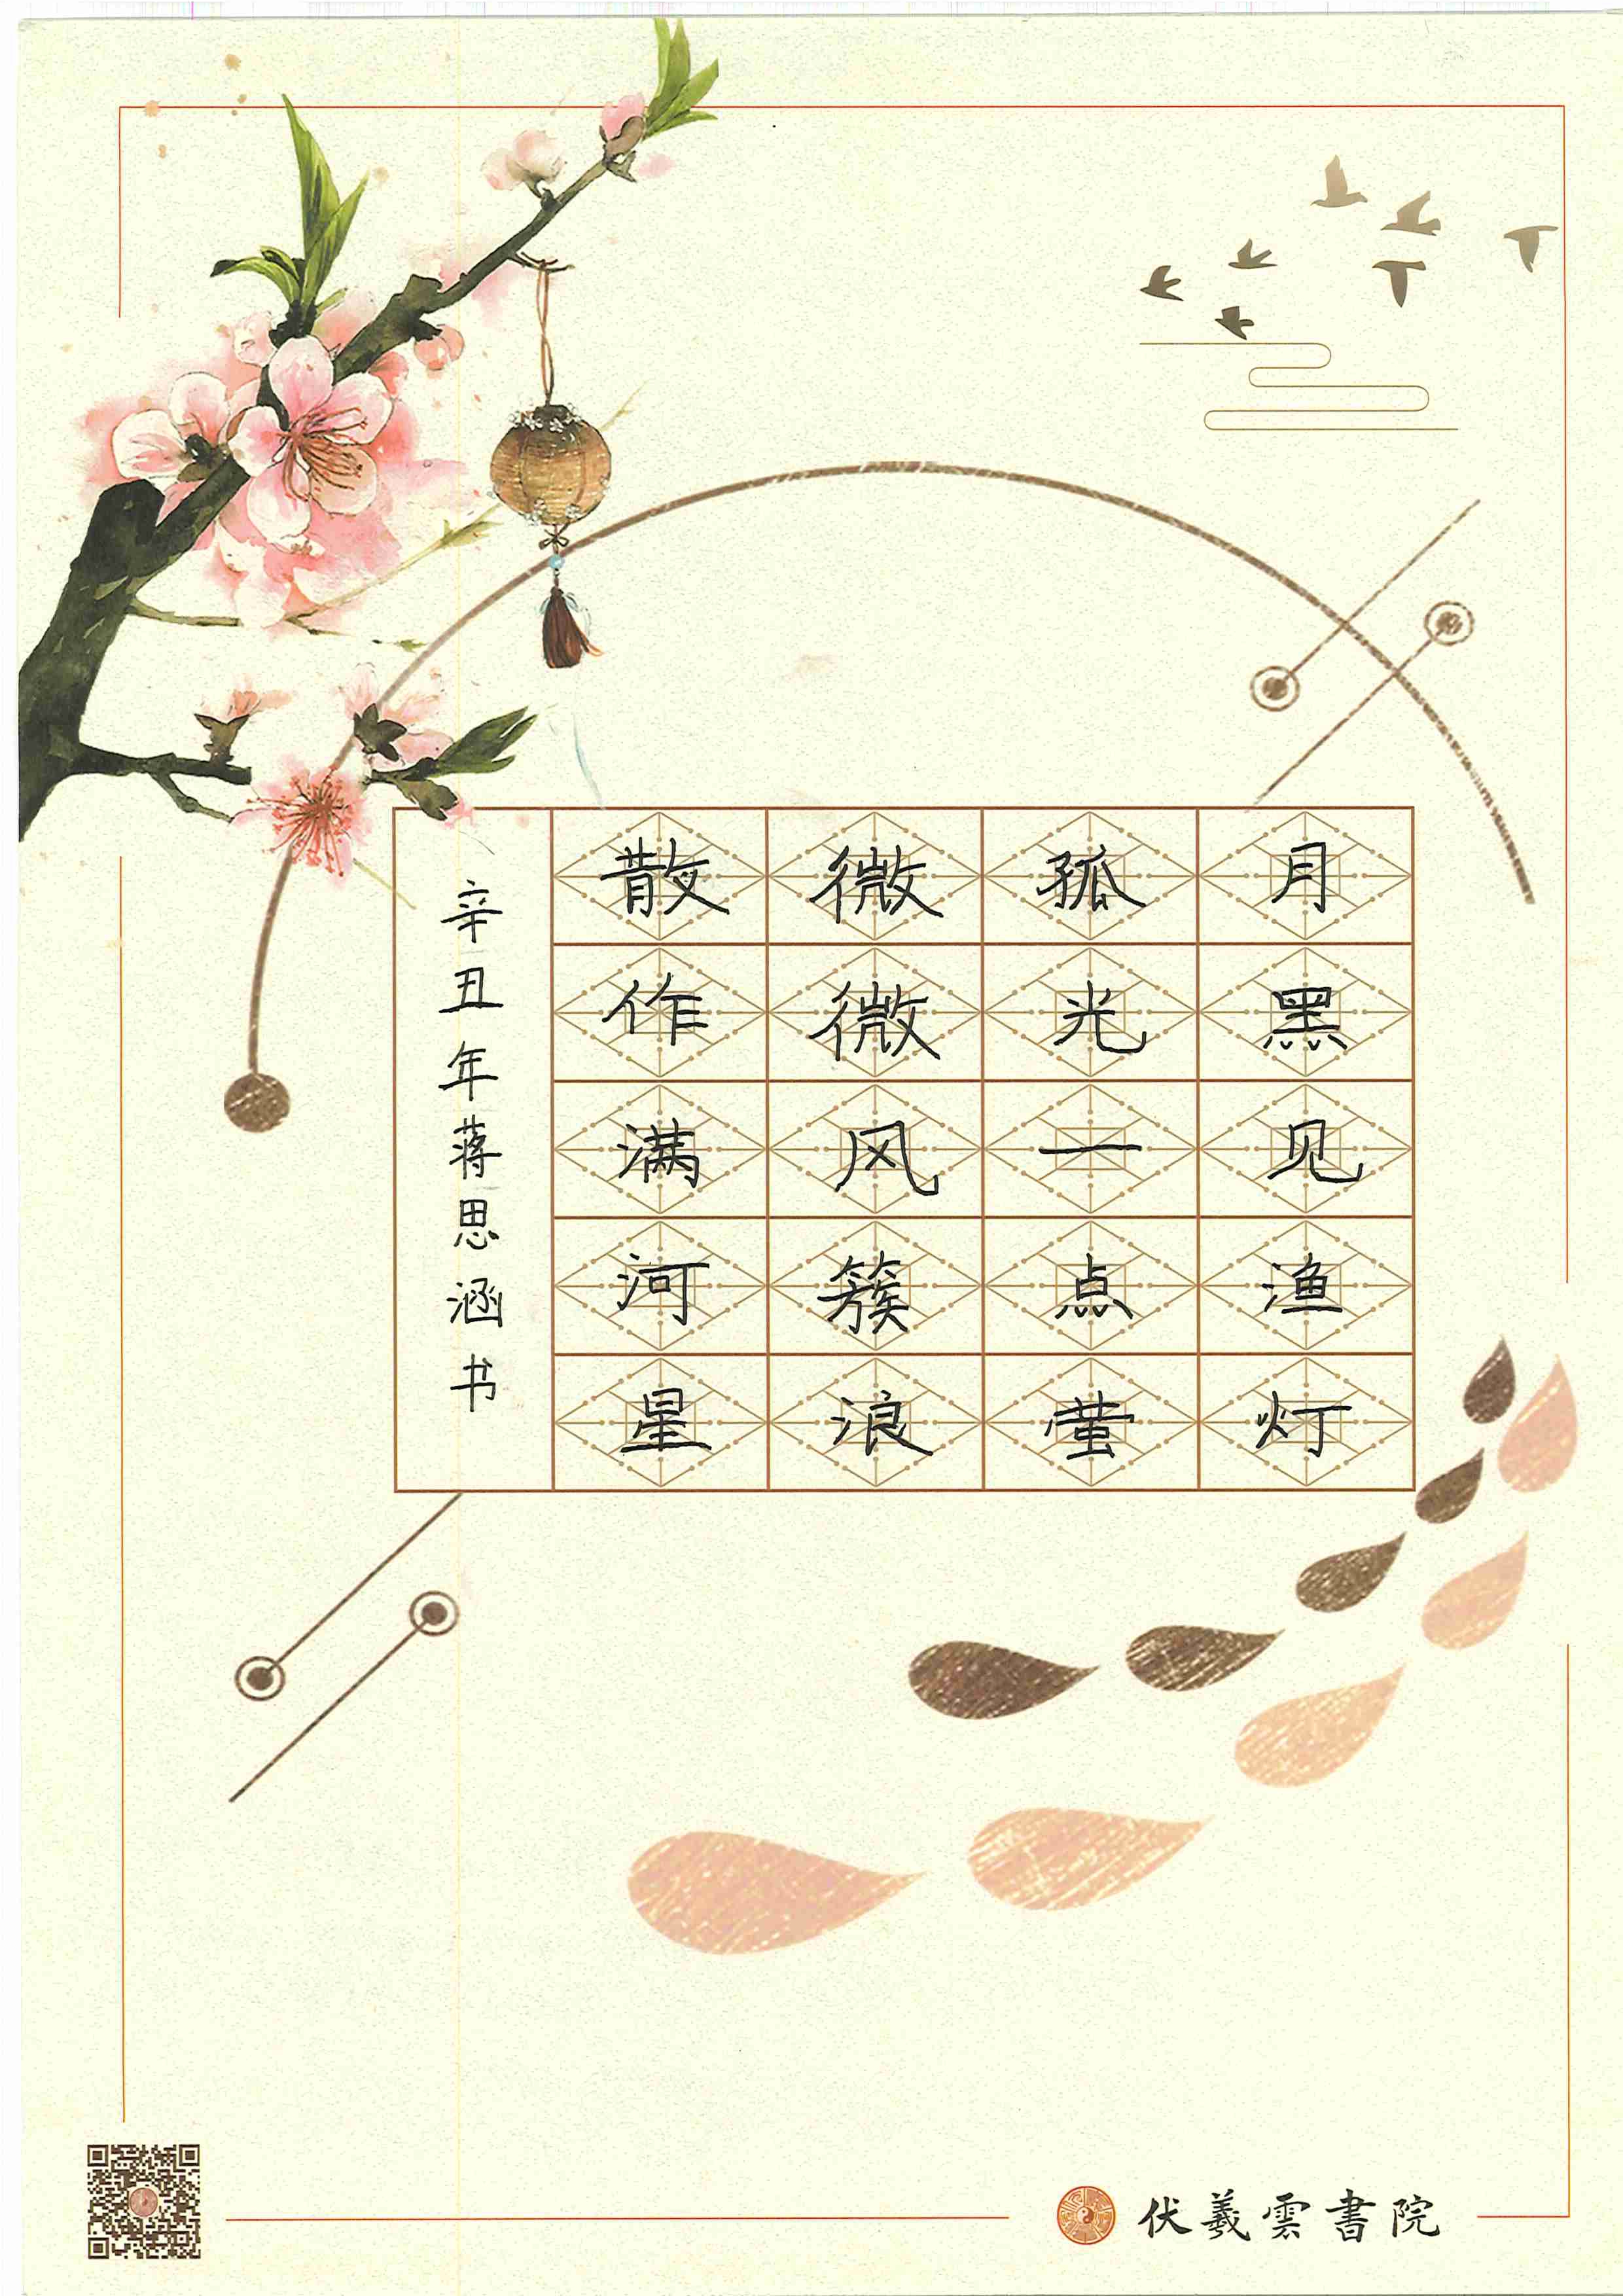 月黑见渔灯
孤光一点萤
微微风簇浪
散作满河星
辛丑年蒋思涵书
伏羲雲書院